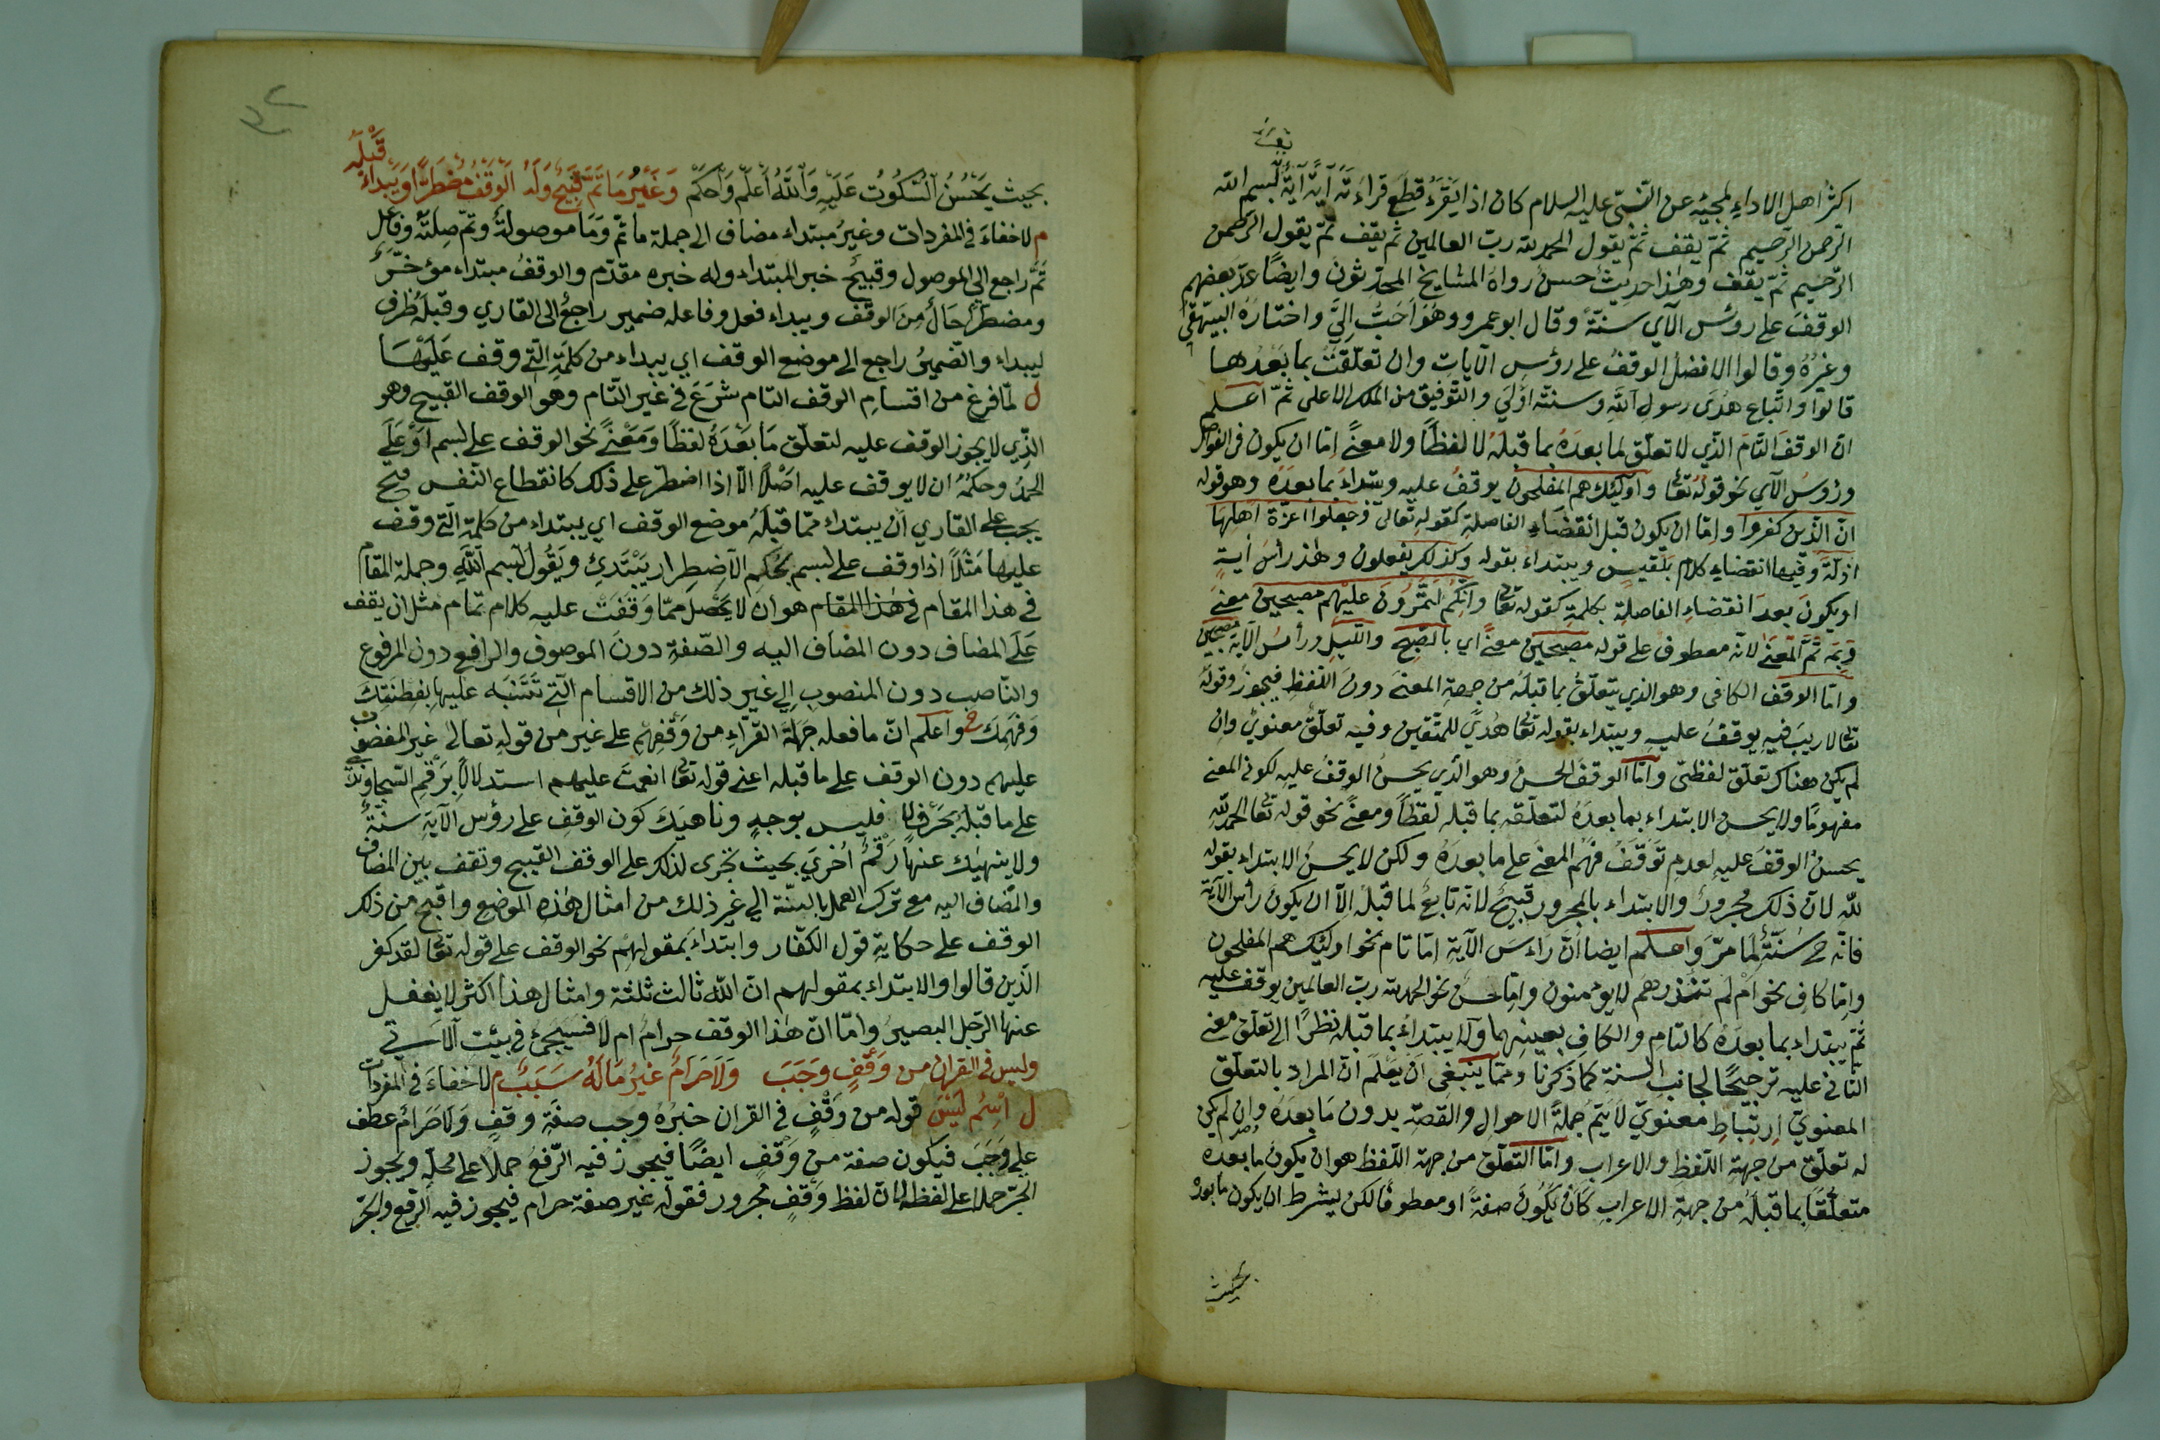 يقول
اكثر اهل الاداء لمجيئه عن النّبيّ عليه السلام كان اذا يقرء قطع قراءته آية آية لبسم الله
الرحمن الرّحيم ثمّ يقف ثمّ يقول الحمد لله ربّ العالمين ثم يقف ثمّ يقول الرّحمن
الرّحيم ثمّ يقف وهذا حديث حسن رواه المشايخ المحدّثون وايضًا عدّ بعضهم
الوقف على رؤس الآي سنّة وقال ابو عمرو وهو احبّ اليّ واختاره البيهقي
وغيره وقالوا الافضل الوقف على رؤس الآيات وان تعلّقت بما بعدها
قالوا واتّباع هدى رسول الله وسنته اولي والتّوفيق من الملك الاعلى ثمّ اعلم
انّ الوقف التّام الّذي لا تعلّق لما بعده بما قبله لا لفظًا ولا معنًى امّا ان يكون في الفواصل
ورؤس الآي نحو قوله تعا واولئك هم المفلحون يوقف عليه ويبتداء بما بعده وهو قوله
انّ الّذين كفروا وامّا ان يكون قبل انقضاء الفاصلة كقوله تعالى وجعلوا اعزّة اهلها
اذلّة وفيها انقضاء كلام بلقيس ويبتداء بقوله وكذلك يفعلون وهذ رأس اية
او يكون بعد انقضاء الفاصلة بكلمة كقوله تعا وانّكم لتمرّون عليهم مصبحين معنى
وثمه تمّ المعنى لانّه معطوف على قوله مصبحين معنًى اي بالصّبح والّليل ورأس الآية مصبحين
وامّا الوقف الكافى وهو الذي يتعلّق بما قبله من جهة المعنى دون اللّفظ فيجوز وقوله
تعا لا ريب فيه يوقف عليه ويبتداء بقوله تعا هدًى للمتّقين وفيه تعلّق معنويّ وان
لم يكن هناك تعلّق لفظيّ وامّا الوقف الحسن وهو الّذي يحسن الوقف عليه لكونى المعنى
مفهومًا ولا يحسن الابتداء بما بعده لتعلّقه بما قبله لفظًا ومعنًى نحو قوله تعا الحمد لله
يحسن الوقف عليه لعدم توقّف فهم المعنى على ما بعده ولكن لا يحسن الابتداء بقوله
لله لانّ ذلك مجرور والابتداء بالمجرور قبيح لانّه تابع لما قبله الّا ان يكون رأس الآية
فانّه ح سنّة لما مرّ واعلم ايضا انّ راءس الآية امّا تام نحو اولئك هم المفلحون
وامّا كاف نحو ام لم تنذرهم لا يؤمنون وامّا حسن نحو الحمد لله ربّ العالمين يوقف عليه
ثمّ يبتداء بما بعده كالتام والكاف بعينهما ولا يبتداء بما قبله نظرًا الى تعلّق معنى
الثانى عليه ترجيحًا لجانب السنة كما ذكرنا وممّا ينبغي ان يعلم انّ المراد بالتعلّق
المعنويّ ارتباط معنويّ لا يتمّ جملة الاحوال والقصّة بدون ما بعده وان لم يكن
له تعلّق من جهة اللّفظ والاعراب وامّا التعلّق من جهة اللّفظ هو ان يكون ما بعده
متعلّقًا بما قبله من جهة الاعراب كأن يكون صفةً او معطوفًا لكن ليشرط ان يكون ما بعده
بحيث
بحيث يحسن السّكوت عليه والله اعلم واحكم وغير ما تمّ قبيح وله الوقف مضطرًّا ويبداء قبله
م لا خفاء في المفردات وغير مبتداء مضاف الى جملة ما تمّ وما موصولة وتمّ صلته وفاعل
تمّ راجع الى الموصول وقبيح خبر المبتداء وله خبره مقدّم والوقف مبتداء مؤخّر
ومضطرًّا حال من الوقف ويبداء فعل وفاعله ضمير راجع الى القاري وقبله ظرف
ليبداء والضمير راجع الى موضع الوقف اي يبداء من كلمة الّتي وقف عليها
ل لمّا فرغ من اقسام الوقف التام شرع في غير التّام وهو الوقف القبيح وهو
الّذي لا يجوز الوقف عليه لتعلّق ما بعده لفظًا ومعنًى نحو الوقف على بسم او على
الحمد وحكمه ان لا يوقف عليه اصلًا الّا اذا اضطرّ على ذلك كانقطاع النّفس فح
يجب على القاري ان يبتداء ممّا قبله موضع الوقف اي يبتداء من كلمة الّتي وقف
عليها مثلًا اذا وقف على بسم بحكم الاضطرار يبتدئ ويقول بسم الله وجملة المقام
في هذا المقام في هذا المقام هو ان لا يحصل ممّا وقفت عليه كلام تمام مثل ان يقف
على المضاف دون المضاف اليه والصّفة دون الموصوف والرافع دون المرفوع
والنّاصب دون المنصوب الى غير ذلك من الاقسام الّتي تتنبّه عليها بفطنتك
وفهمك واعلم انّ ما فعله جهلة القرّاء من وقفهم على غير من قوله تعالى غير المغضوب
عليهم دون الوقف على ما قبله اعني قوله تعا انعمت عليهم استدلالًا برقم السّجاوندي
على ما قبله بحرف لا فليس بوجه وناهيك كون الوقف على رؤس الآية سنّة
ولا ينهيك عنها رقم اخرى بحيث تجرى لذلك على الوقف القبيح وتقف بين المضاف
والمضاف اليه مع ترك العمل بالسنّة الى غير ذلك من امثال هذه الموضع واقبح من ذلك
الوقف على حكاية قول الكفّار وابتداء بمقولهم نحو الوقف على قوله تعا لقد كفر
الّذين قالوا والابتداء بمقولهم انّ الله ثالث ثلثة وامثال هذا اكثر لا يغفل
عنها الرّجل البصير وامّا انّ هذا الوقف حرام ام لا فسيجئ في بيت الآتي
وليس في القران من وقف وجب ولا حرام غير ما له سبب م لا خفاء في المفردات
ل اسم ليس قوله من وقف في القران خبره وجب صفة وقف ولا حرام عطف
على وجب فيكون صفة من وقف ايضًا فيجوز فيه الرّفع حملًا على محلّه ويجوز
الجرّ حملا على لفظه لانّ لفظ وقف مجرور فقوله غير صفة حرام فيجوز فيه الرفع والجرّ